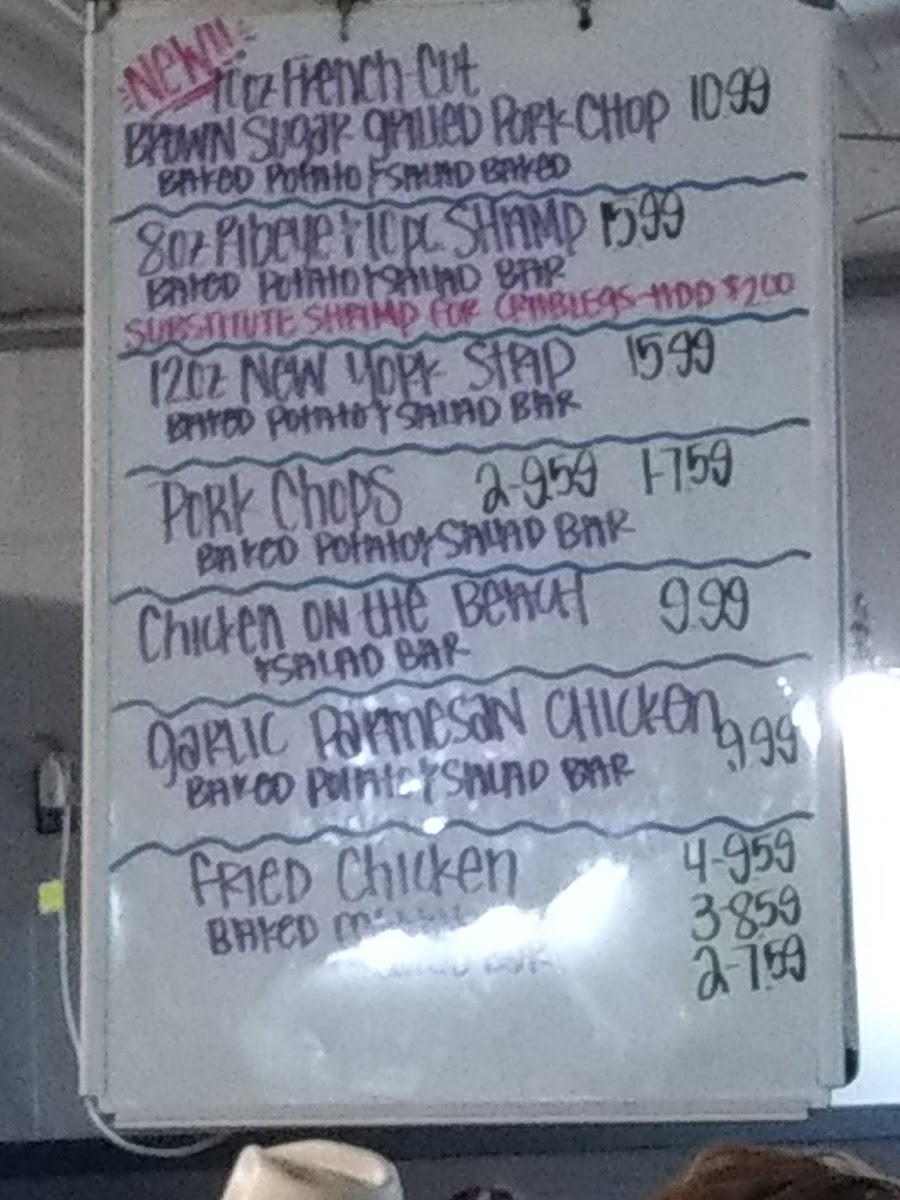 NEW!!
11oz French Cut
BROWN SUGAR GRILLED PORK CHOP 10.99
BAKED POTATO + SALAD BAKED
8oz Ribeye + 10pc. SHRIMP 15.99
BAKED POTATO + SALAD BAR
SUBSTITUTE SHRIMP FOR CRABLEGS-ADD $2.00
12oz NEW YORK STRIP 15.99
BAKED POTATO + SALAD BAR
PORK CHOPS 2-9.59 1-7.59
BAKED POTATO + SALAD BAR
CHICKEN ON THE BEACH 9.99
+ SALAD BAR
GARLIC PARMESAN CHICKEN 9.99
BAKED POTATO + SALAD BAR
FRIED CHICKEN 4-9.59
BAKED 3-8.59
BAR 2-7.59